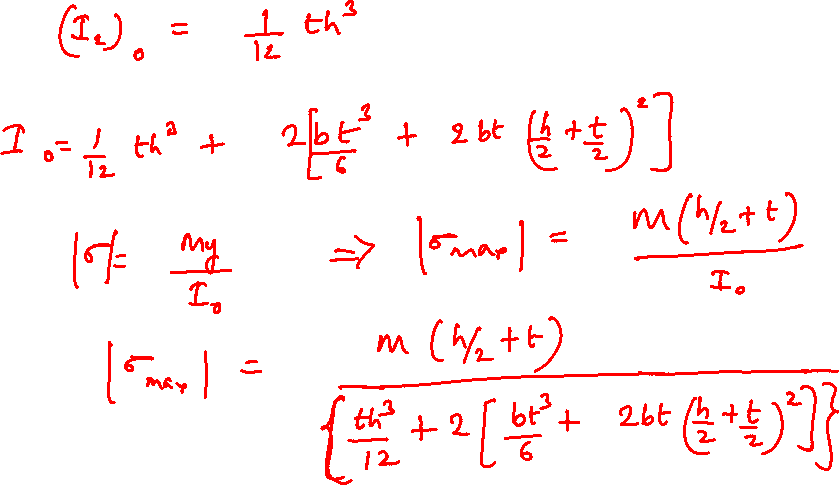 (I₂)₀ = 1/12 th³
I₀ = 1/12 th³ + 2[bt³/6 + 2bt (h/2 + t/2)²]
|σ| = My/I₀ ⇒ |σmax| = M(h/2 + t)/I₀
|σmax| = M(h/2 + t)/{th³/12 + 2[bt³/6 + 2bt (h/2 + t/2)²]}